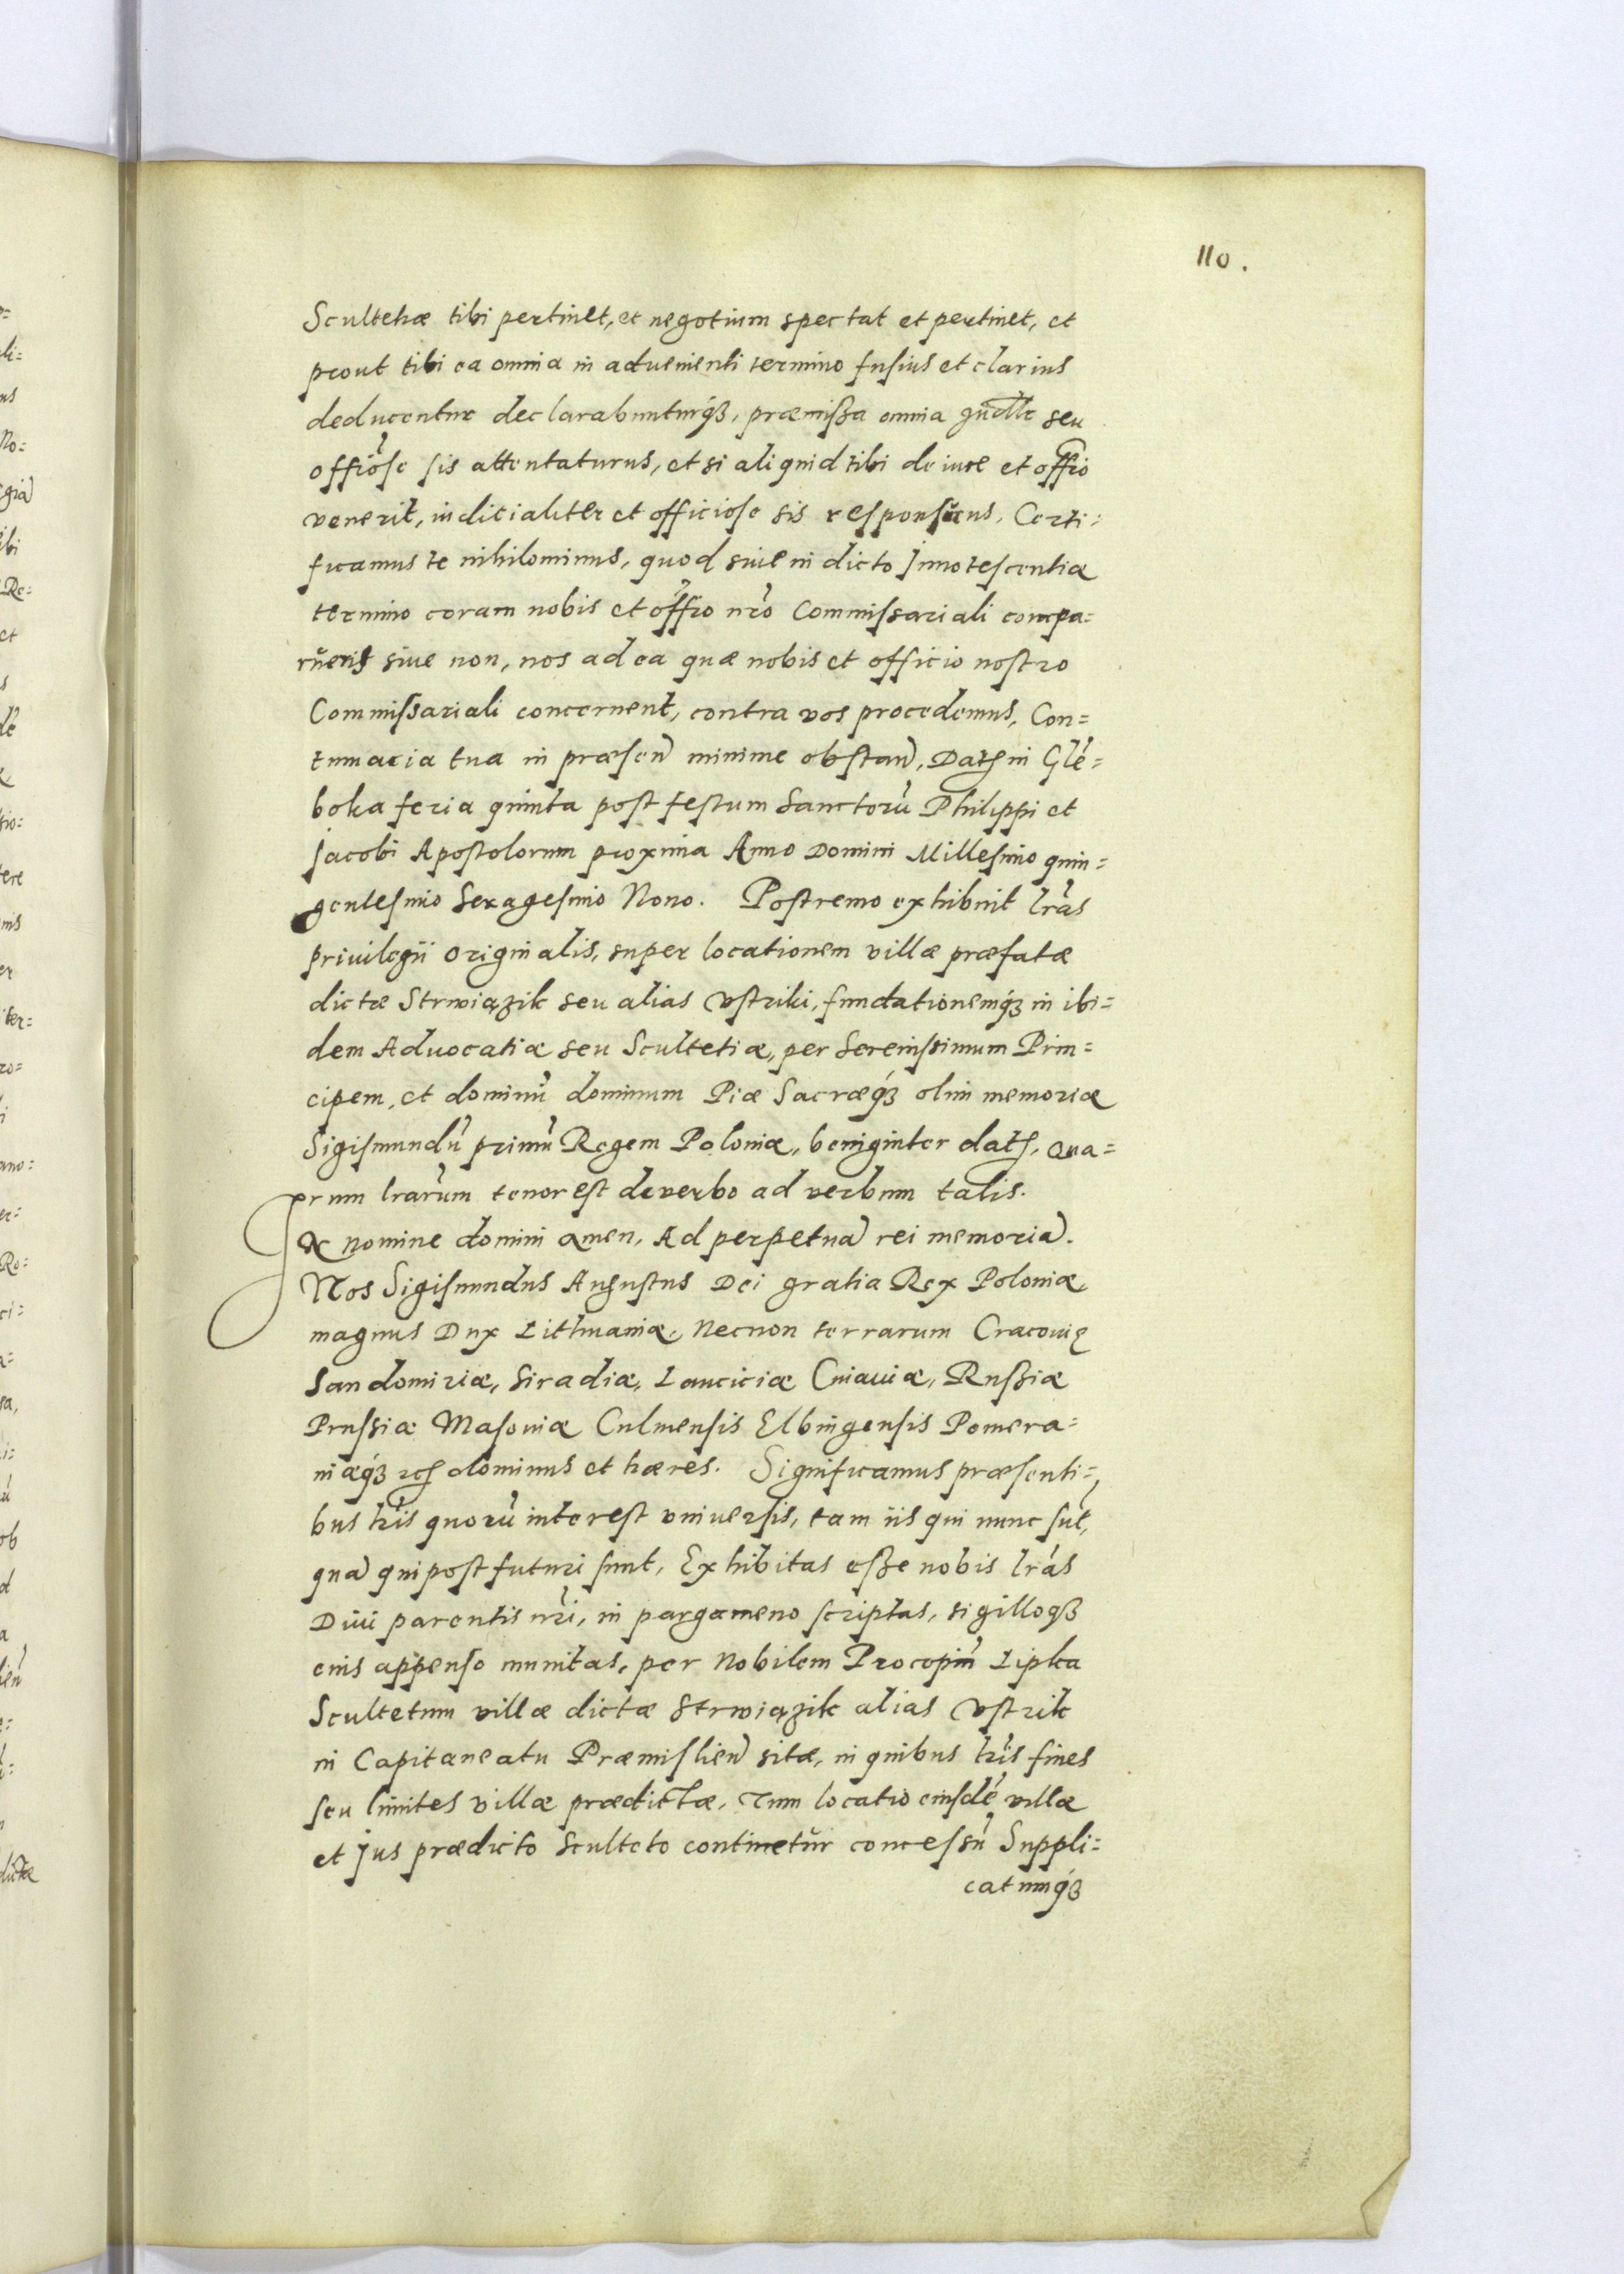 110.
Scultetiæ tibi pertinet, et negotium spectat et pertinet, et
prout tibi ea omnia in aduenienti termino fusius et clarius
deducentur declarabunturq́ꝫ, præmißa omnia seu
offiőse sis attentaturus, et si aliquid tibi de iure et offi͠o
venerit, iudicialiter et officiose sis responsurus, Certi=
ficamus te nihilominus, quod siue in dicto Innotescentiæ
termino coram nobis et offi͠o nr̃o Commissariali compa=
rueris siue non, nos ad ea quæ nobis et officio nostro
Commissariali concernent, contra vos procedemus, Con=
tumacia tua in præsen̄ minime obstan̄, Datꝭ in Glé=
boka feria quinta post festum Sanctorū Philippi et
Jacobi Apostolorum proxima Anno Domini Millesimo quin=
gentesimo Sexagesimo Nono. Postremo exhibuit lr̃as
priuilegii originalis, super locationem villæ præfatæ
dictæ Strwiązik seu alias Vstriki, fundationemq́ꝫ in ibi=
dem Aduocatiæ seu Scultetiæ, per Serenissimum Prin=
cipem, et dominū dominum Piæ Sacræq́ꝫ olim memoriæ
Sigismundū primū Regem Poloniæ, benigniter datꝭ, Qua=
prum lrarūm tenor est de verbo ad verbum talis.
In nomine domini amen, Ad perpetuā rei memoriā.
Nos Sigismundus Augustus Dei gratia Rex Poloniæ,
magnus Dux Lithuaniæ, Necnon terrarum Cracouię
Sandomiriæ, Siradiæ, Lanciciæ Cuiauiæ, Rußiæ
Prussiæ Masouiæ Culmensis Elbingensis Pomera=
niæq́ꝫ ꝛcꝭ dominus et hæres. Significamus præsenti=
bus lr̃is quorū interest vniuersis, tam iis qui nunc sūt,
quā qui post futuri sunt, Exhibitas eße nobis lr̃as
Diui parentis nr̃i, in pargameno scriptas, sigilloqꝫ
eius appenso munitas, per Nobilem Procopiū Lipka
Scultetum villæ dictæ Strwiązik alias Vstrik
in Capitaneatu Præmislien̄ sitæ, in quibus lr̃is fines
seu limites villæ prædictæ, Tum locatio eiusdē villæ
et Jus prædicto Sculteto continetur concessū Suppli=
catumq́ꝫ